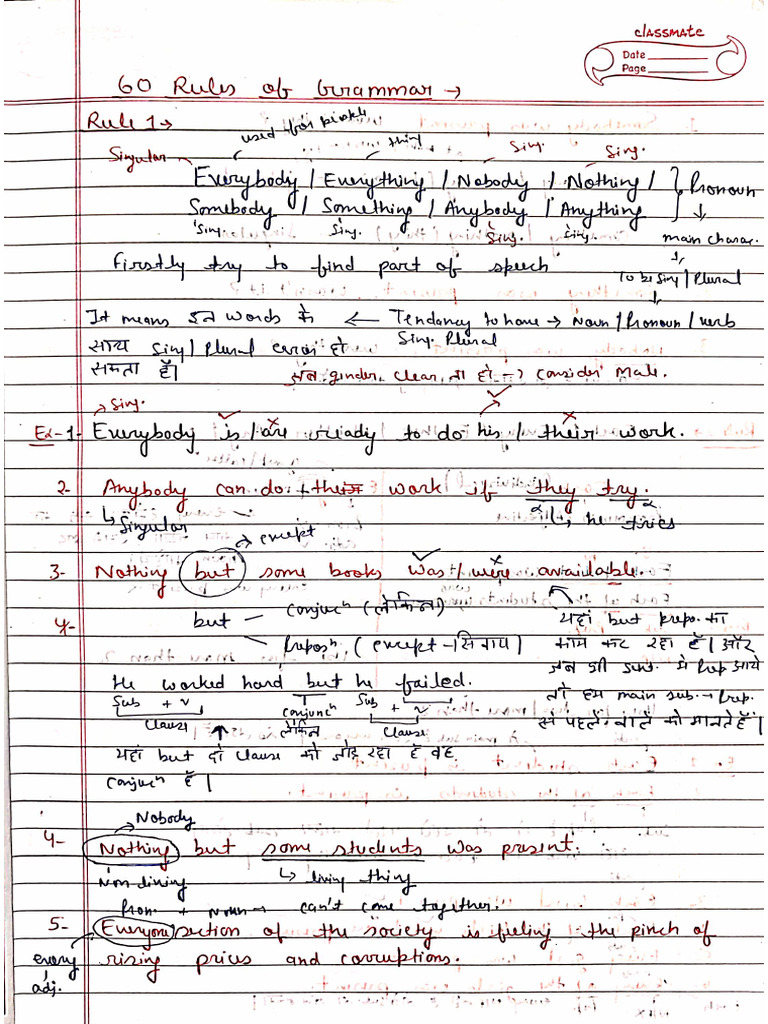 classmate
Date
Page
60 Rules of Grammar →
Rule 1→
used for people
Singular
thing
Sing.
Sing.
Everybody / Everything / Nobody / Nothing /
Somebody / Something / Anybody / Anything
} Pronoun
Sing. Sing. Sing. Sing.
main charac.
Firstly try to find part of speech
To be Sing / Plural
It means इन words के ← Tendancy to have → Noun / Pronoun / verb
साथ Sing / Plural error हो Sing. Plural
सकता है।
जब ginder clear ना हो → consider male.
Sing.
Ex-1- Everybody is / are ready to do his / their work.
2- Anybody can do their work if they try.
↳ Singular
he tries
→ except
3- Nothing but some books was / were available.
4-
but – Conjucⁿ (लेकिन)
Preposⁿ, (except – सिवाय)
यहां but prepo. का
काम कर रहा है। और
जब भी sen. मे Prep आये
तो हम main sub. → Prep.
से पहले वाले को मानते है।
He worked hard but he failed.
Sub + v conjuncⁿ Sub + v
Clause लेकिन Clause
यहां but दो clause को जोड़ रहा है वह
conjucⁿ है।
→ Nobody
4- Nothing but some students was present.
Non living ↳ living thing
Pron. + Noun → can't come together.
5- Everyone section of the society is fieling the pinch of
every rising prices and corruptions.
adj.